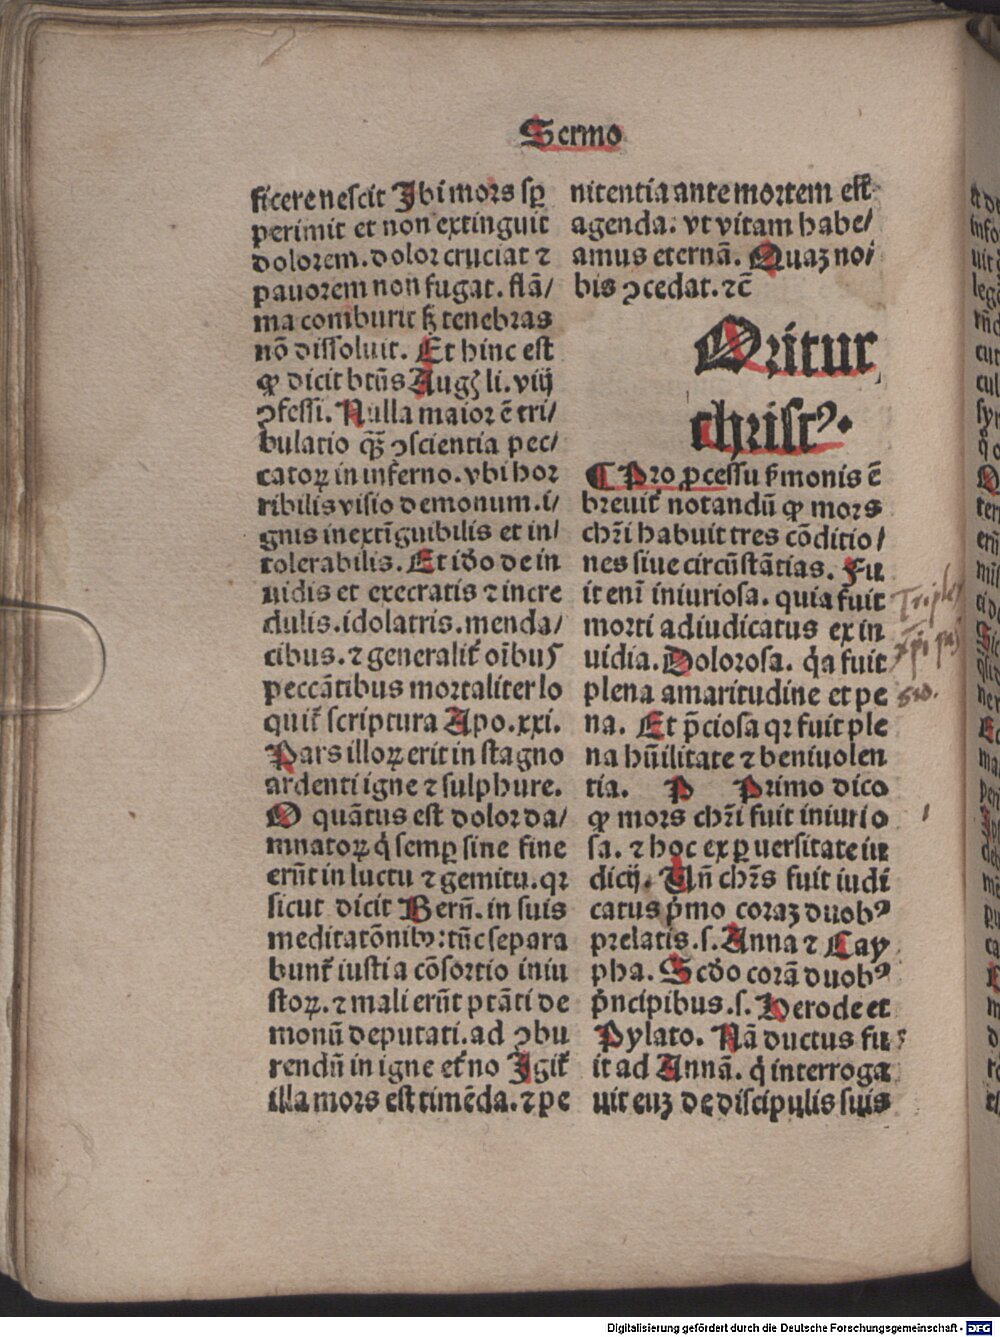 Sermo
ficere nescit Ibi mors sꝑ
perimit et non extinguit
dolorem. dolor cruciat ⁊
pauorem non fugat. flã/
ma comburit sꝫ tenebras
nõ dissoluit. Et hinc est
ꝙ dicit btũs Augꝰ li. viij
ꝯfessi. Nulla maior ẽ tri/
bulatio qꝫ̃ ꝯscientia pec/
catoꝝ in inferno. vbi hor
ribilis visio demonum. i/
gnis inextĩguibilis et in/
tolerabilis. Et iđo de in
uidis et execratis ⁊ incre
dulis. idolatris. menda/
cibus. ⁊ generalit̃ oĩbus
peccãtibus mortaliter lo
quit̃ scriptura Apo. xxi.
Pars illoꝝ erit in stagno
ardenti igne ⁊ sulphure.
O quãtus est dolor da/
mnatoꝝ q̇ semꝑ sine fine
erũt in luctu ⁊ gemitu. qꝛ
sicut dicit Berñ. in suis
meditatõnibꝰ: tũc separa
bunt̃ iusti a cõsortio iniu
stoꝝ. ⁊ mali erũt ptãti de
monũ deputati. ad ꝯbu
rendũ in igne et̃no Igit̃
illa mors est timẽda. ⁊ pe
nitentia ante mortem est
agenda. vt vitam habe/
amus eternã. Quaꝫ no/
bis ꝯcedat. ⁊c̃
Oritur
christꝰ.
¶ Pro ꝓcessu s̃monis ẽ
breuit̃ notandũ ꝙ mors
chr̃i habuit tres cõditio/
nes siue circũstãtias. Fu
it enĩ iniuriosa. quia fuit
morti adiudicatus ex in
uidia. Dolorosa. q̇a fuit
plena amaritudine et pe
na. Et p̃ciosa qꝛ fuit ple
na hũilitate ⁊ beniuolen
tia. P Primo dico
ꝙ mors chr̃i fuit iniurio
sa. ⁊ hoc ex ꝑuersitate iu
dicij. Vñ chr̃s fuit iudi
catus ṗmo coraꝫ duobꝰ
prelatis. s. Anna ⁊ Cay
pha. Scđo corã duobꝰ
ṗncipibus. s. Herode et
Pylato. Nã ductus fu
it ad Annã. q̇ interroga
uit euꝫ de discipulis suis
Triplex
xp̃i pas
sio.
Digitalisierung gefördert durch die Deutsche Forschungsgemeinschaft - DFG